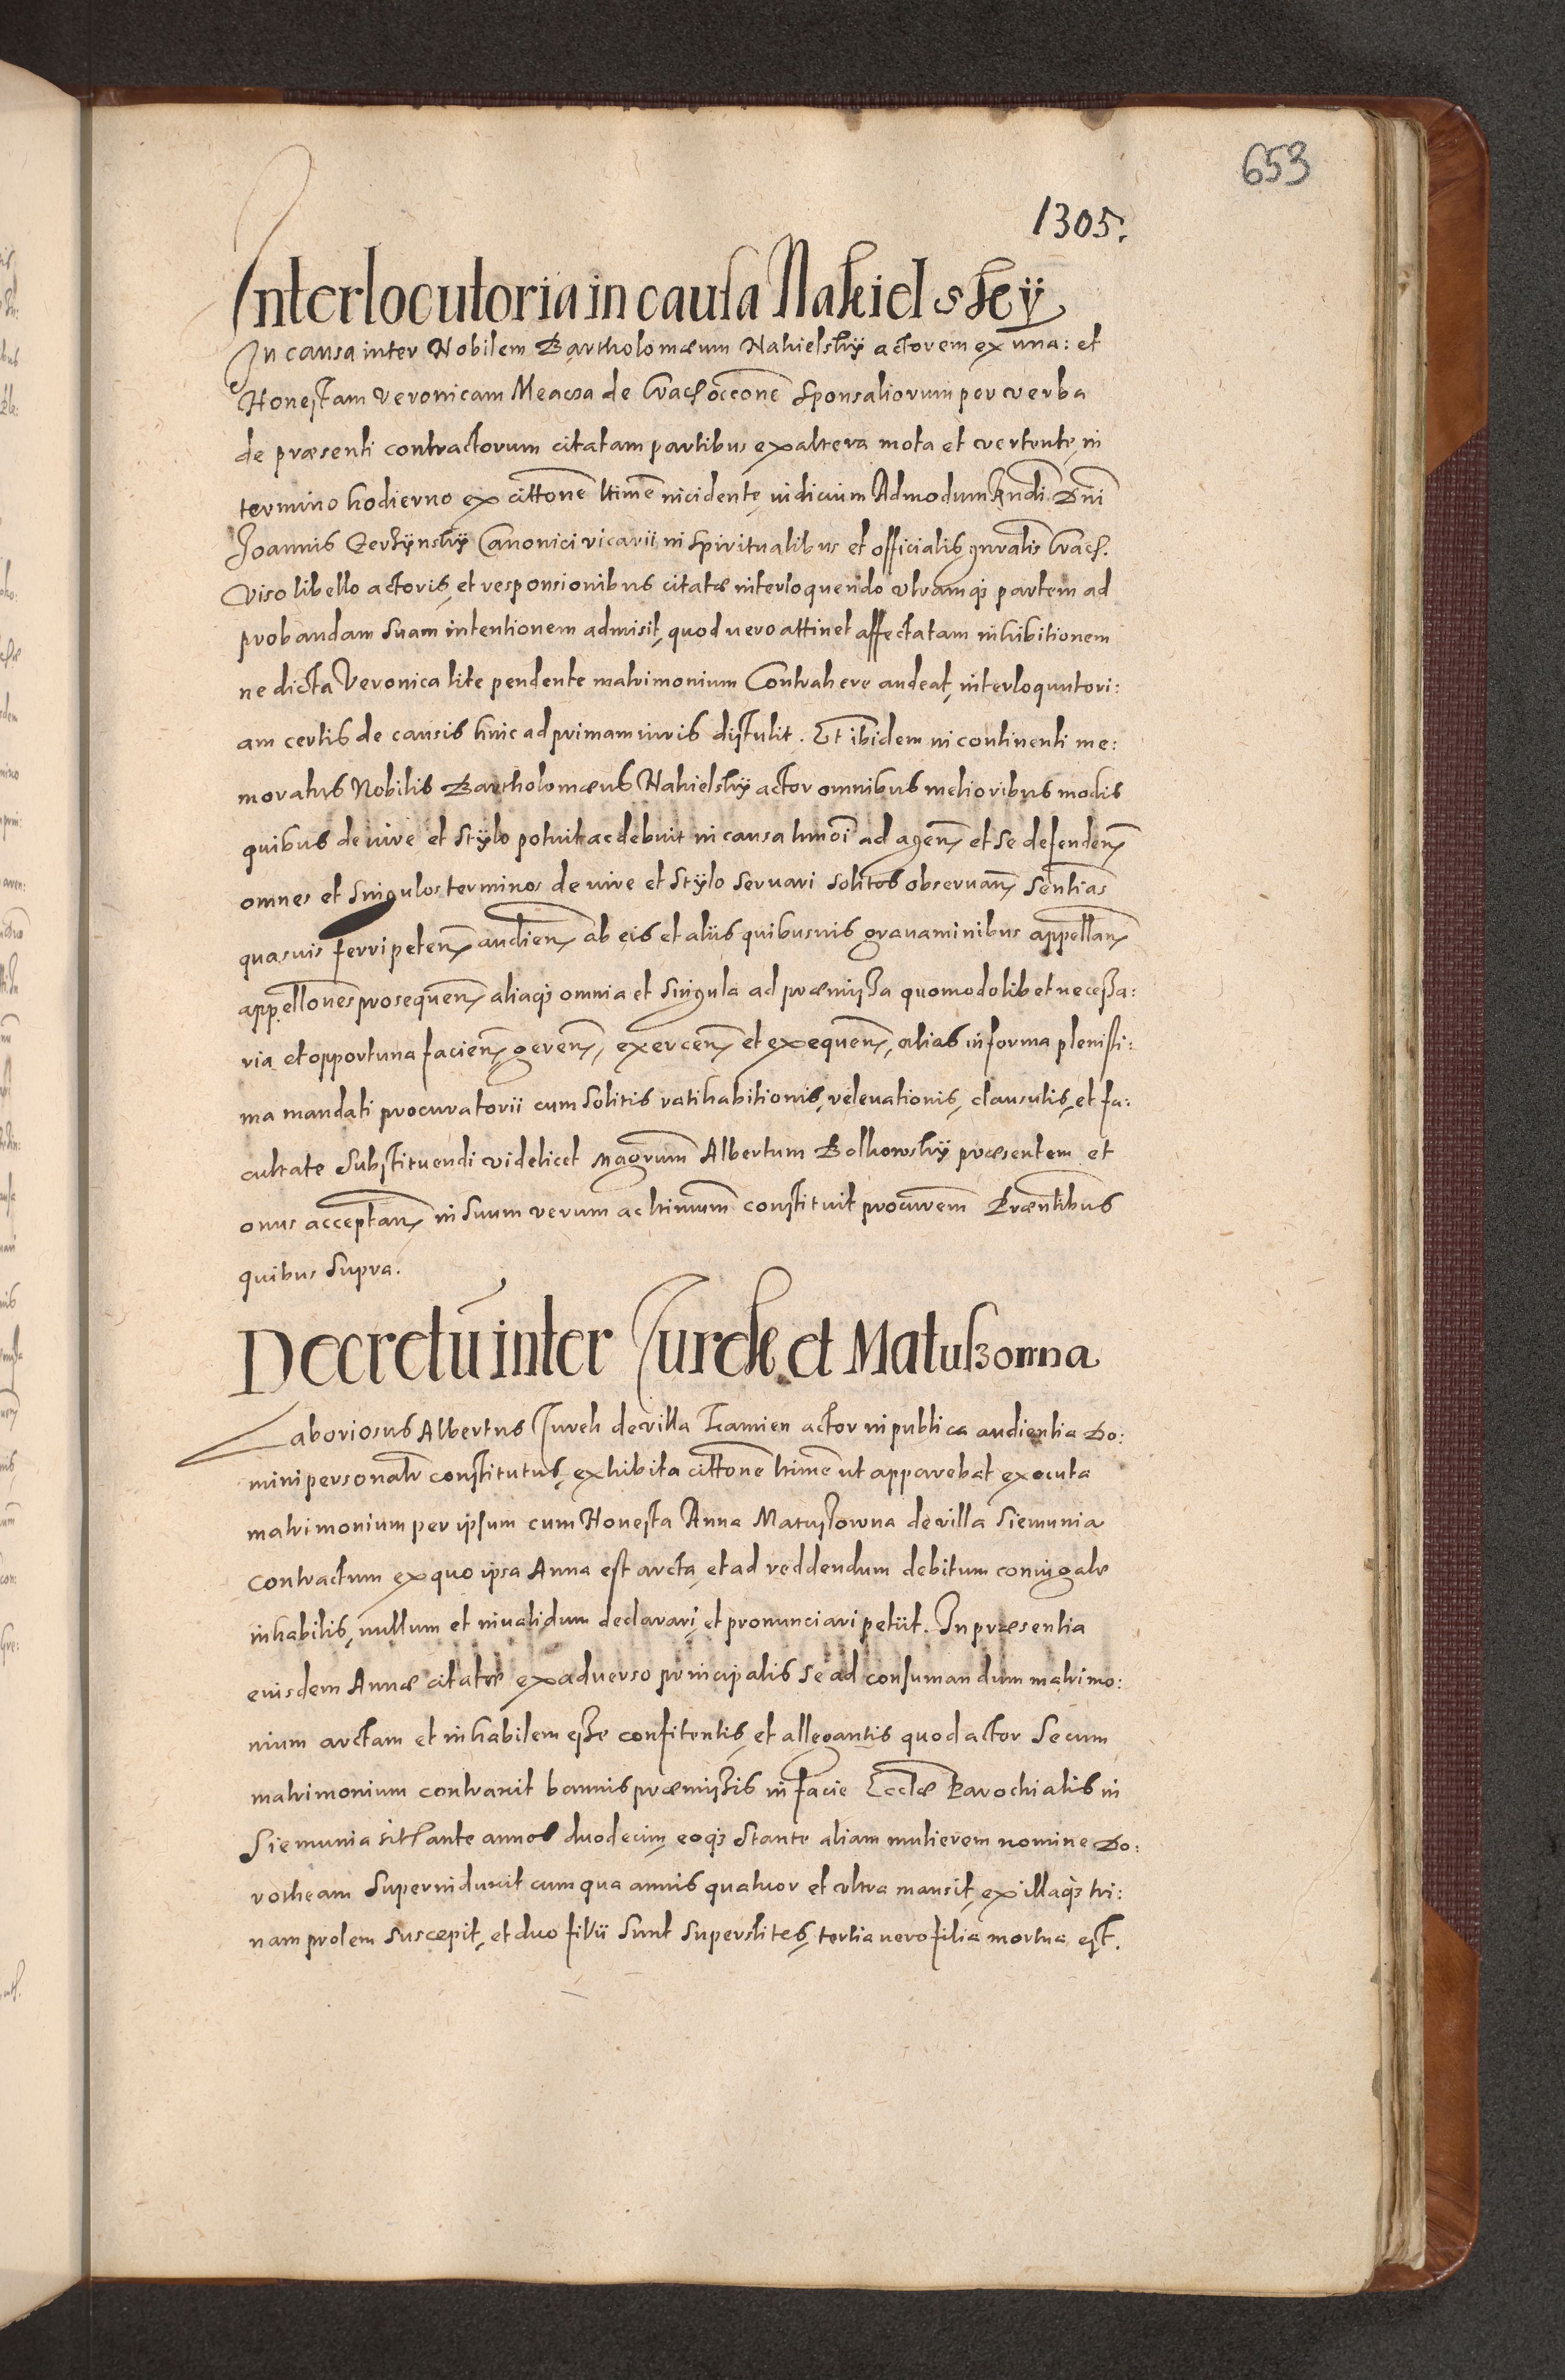 653
1305.
Interlocutoria in causa Nakielskÿ
In causa inter Nobilem Bartholomæum Nakielskÿ actorem ex una: et
Honestam Veronicam Meacza de Crac occone sponsaliorum per verba
de præsenti contractorum citatam partibus ex altera mota et vertente, in
termino hodierno ex cittone ltime incidente, iudicium Admodum Rndi Dni
Joannis Canonici vicarii in spiritualibus et officialis gnralis Crac.
Viso libello actoris, et responsionibus citatæ interloquendo utramq; partem ad
probandam suam intentionem admisit, quod uero attinet affectatam inhibitionem
ne dicta Veronica lite pendente matrimonium Contrahere audeat, interloquutori:
am certis de causis hinc ad primam iuris distulit. Et ibidem in continenti me:
moratus Nobilis Bartholomæus Nakielskÿ actor omnibus melioribus modis
quibus de iure et stÿlo potuit ac debuit in causa hmoi ad agen et se defenden
omnes et singulos terminos de iure et stÿlo seruari solitos obseruan sentias
quasuis ferri peten audien ab eis et aliis quibusuis grauaminibus appellan
appellones prosequen aliaq; omnia et singula ad præmissa quomodolibet necessa:
ria et opportuna facien, geren, exercen et exequen, alias in forma plenissi:
ma mandati procuratorii cum solitis ratihabitionis, releuationis, clausulis, et fa:
cultate substituendi videlicet Magrum Albertum Bolkowskÿ præsentem et
onus acceptan in suum verum ac ltimum constituit procurem Præntibus
quibus supra.
Decretū inter Jurek et Matuszonna
Laboriosus Albertus Jurek de villa Kamien actor in publica audientia Do:
mini personalr constitutus, exhibita cittone ltime ut apparebat executa
matrimonium per ipsum cum Honesta Anna Matussowna de villa Siemunia
contractum ex quo ipsa Anna est arcta, et ad reddendum debitum coniugale
inhabilis, nullum et inualidum declarari, et pronunciari petiit. In præsentia
eiusdem Annæ citatæ ex aduerso principalis se ad consumandum matrimo:
nium arctam et inhabilem esse confitentis, et allegantis quod actor secum
matrimonium contraxit bannis præmissis in facie Ecclæ Parochialis in
Siemunia ante annos duodecim, eoq; stante aliam mulierem nomine Do:
rotheam superinduxit cum qua annis quatuor et ultra mansit, ex illaq; tri:
nam prolem suscepit, et duo filii sunt superstites, tertia uero filia mortua est.